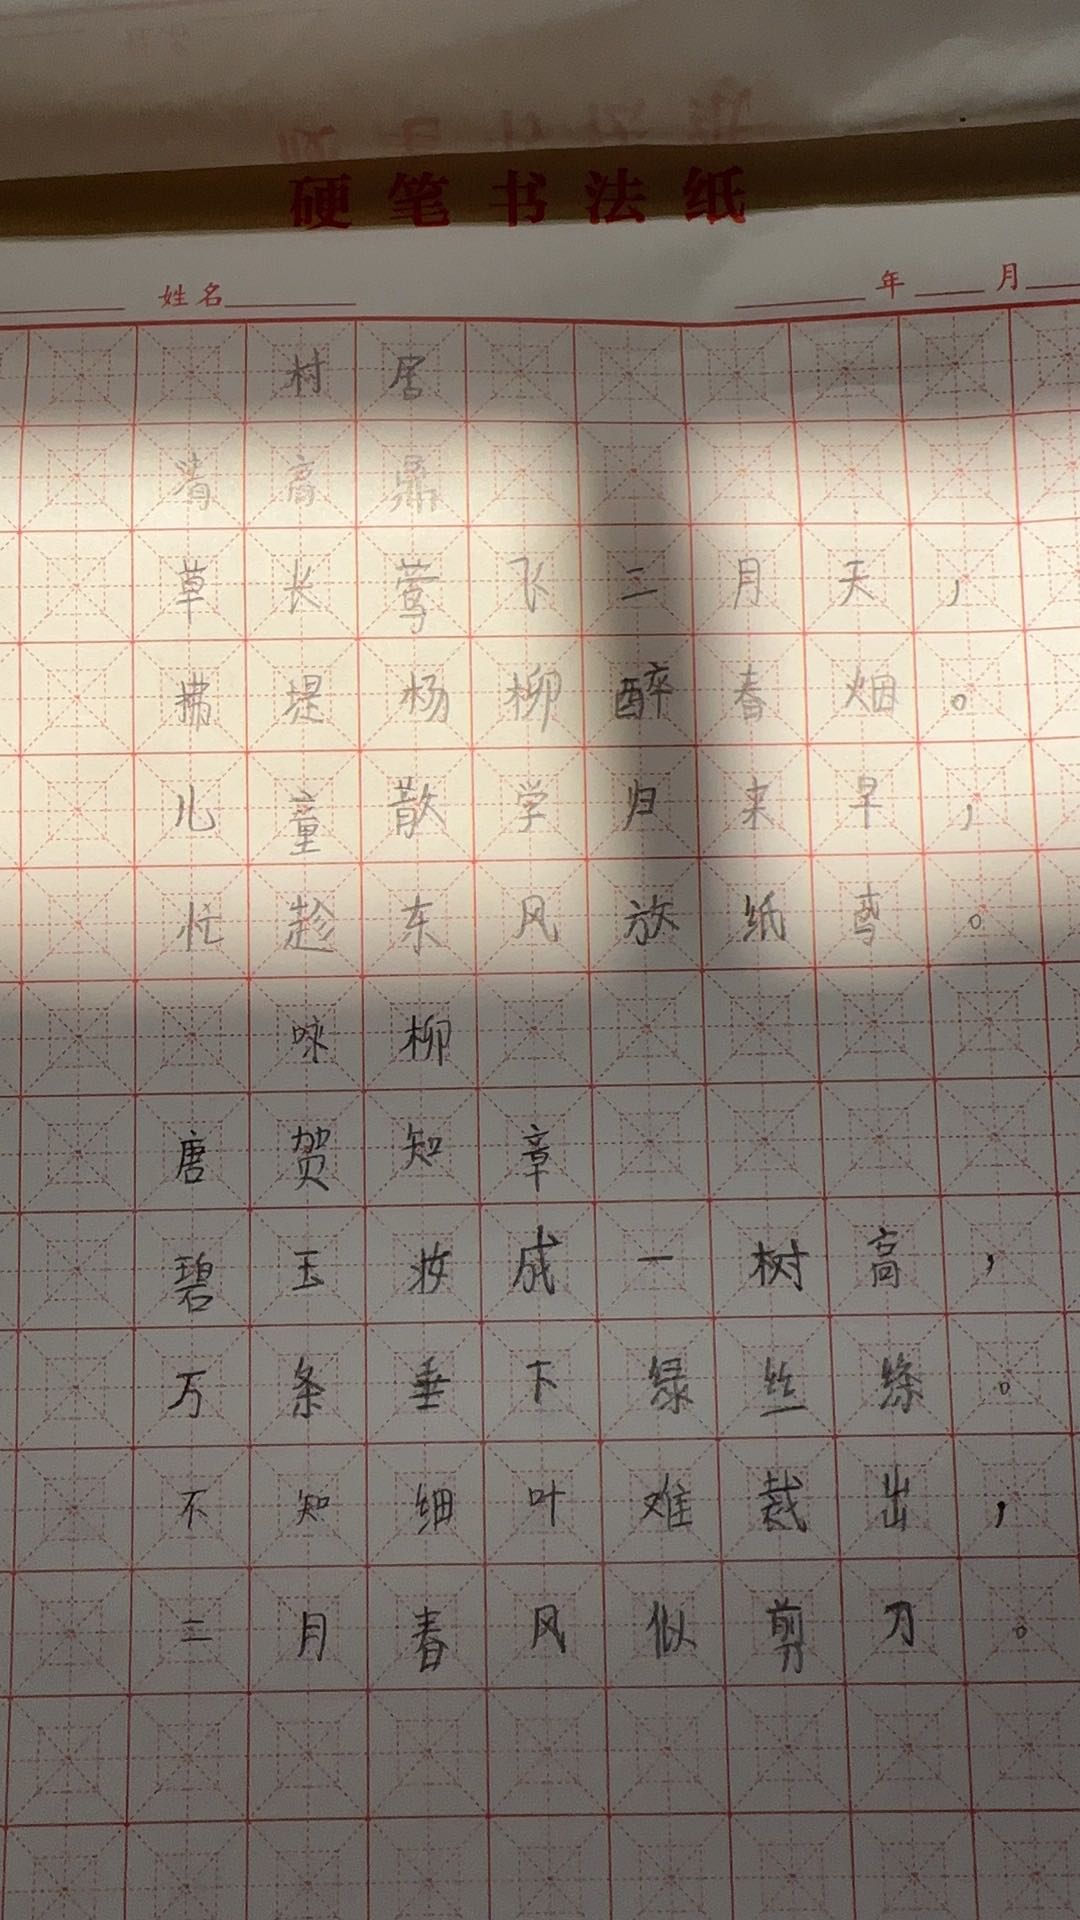 硬笔书法纸
姓名 年 月
村居
清高鼎
草长莺飞二月天，
拂堤杨柳醉春烟。
儿童散学归来早，
忙趁东风放纸鸢。
咏柳
唐贺知章
碧玉妆成一树高，
万条垂下绿丝绦。
不知细叶难裁出，
二月春风似剪刀。